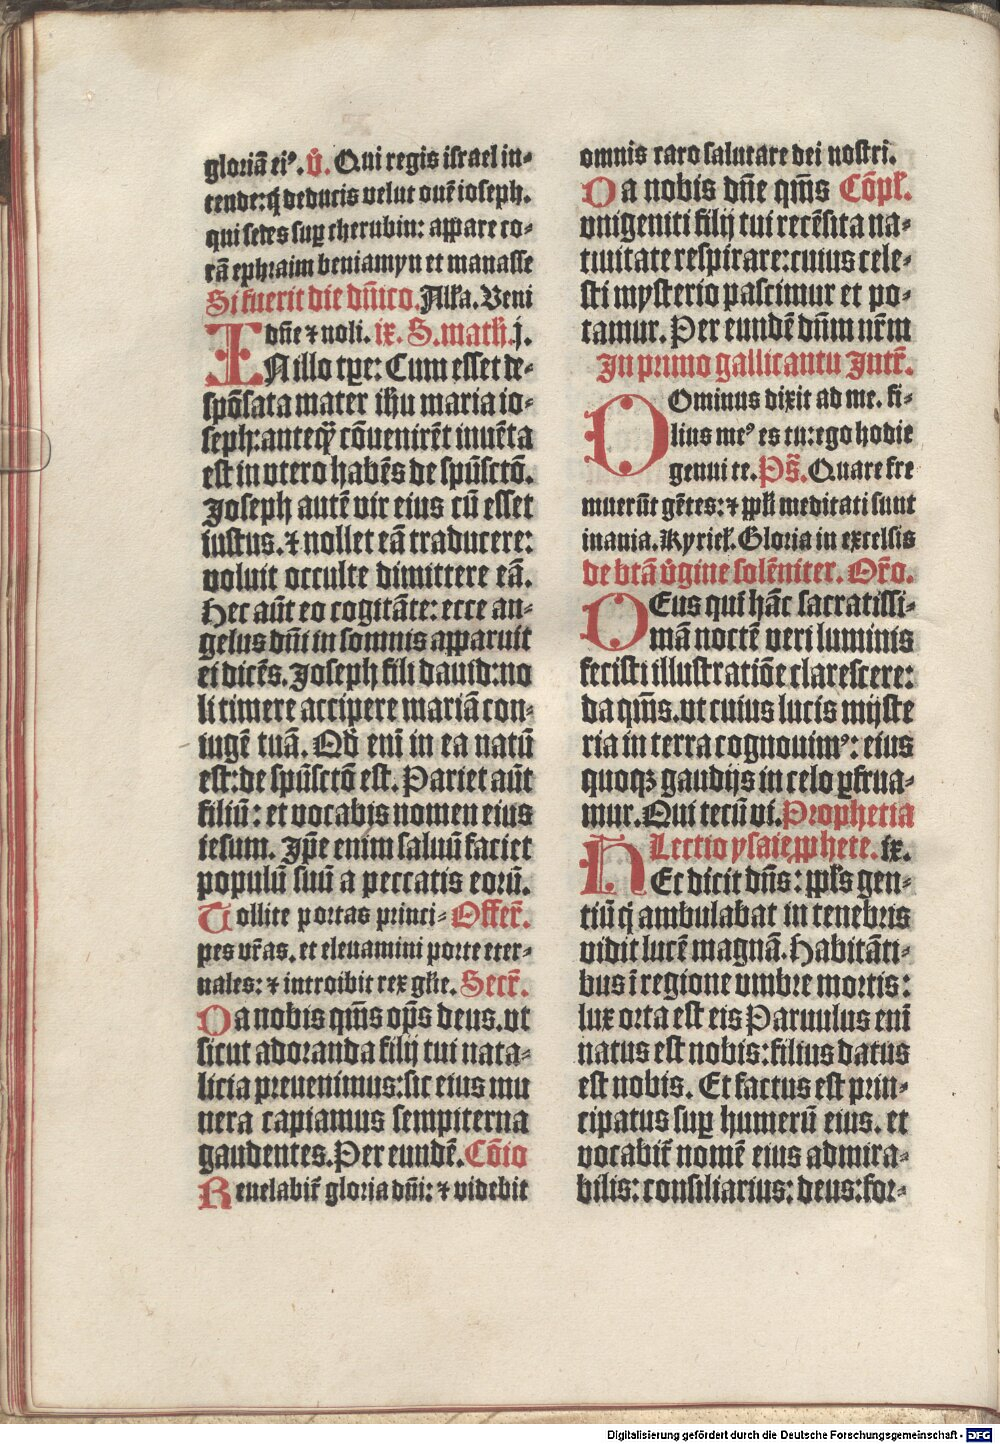 gloriā ei⁹. v̄. Qui regis israel in-
tende: q̇ deducis velut ouē ioseph.
qui sedes sup̲ cherubin: appare co-
rā ephraim beniamyn et manasse
Si fuerit die dn̄ico. Alľa. Veni
dn̄e ⁊ noli. ix. S. math. j.
IN illo tp̲e: Cum esset de-
spōsata mater ihū maria io-
seph: anteq̄ cōuenirēt inuēta
est in vtero habēs de spū sctō.
Joseph autē vir eius cū esset
iustus. ⁊ nollet eā traducere:
voluit occulte dimittere eā.
Hec aūt eo cogitāte: ecce an-
gelus dn̄i in somnis apparuit
ei dicēs. Joseph fili dauid: no
li timere accipere mariā con-
iugē tuā. Qđ eni in ea natū
est: de spū sctō est. Pariet aūt
filiū: et vocabis nomen eius
iesum. Ip̄e enim saluū faciet
populū suū a peccatis eorū.
Tollite portas princi- Offer̄.
pes vr̄as. et eleuamini porte eter-
nales: ⁊ introibit rex gľie. Secr̄.
Da nobis qm̄s op̄s deus. vt
sicut adoranda filij tui nata-
licia preuenimus: sic eius mu
nera capiamus sempiterna
gaudentes. Per eundē. Cōio
Reuelabit̄ gloria dn̄i: ⁊ videbit
omnis caro salutare dei nostri.
Da nobis dn̄e qm̄s Cōpľ.
vnigeniti filij tui recēsita na-
tiuitate respirare: cuius cele-
sti mysterio pascimur et po-
tamur. Per eundē dn̄m nr̄m
In primo gallicantu Intr̄.
DOminus dixit ad me. fi-
lius me⁹ es tu: ego hodie
genui te. Ps̄. Quare fre
muerūt gētes: ⁊ ppľi meditati sunt
inania. Kyrieľ. Gloria in excelsis
de btā v̇gine solēniter. Or̄o.
DEus qui hāc sacratissi-
mā noctē veri luminis
fecisti illustratiōe clarescere:
da qm̄s. vt cuius lucis myste
ria in terra cognouim⁹: eius
quoqꝫ gaudijs in celo p̲frua-
mur. Qui tecū vi. Prophetia
Lectio ysaie p̲phete. ix.
HEc dicit dn̄s: ppľs gen-
tiū q̇ ambulabat in tenebris
vidit lucē magnā. Habitāti-
bus ī regione vmbre mortis:
lux orta est eis Paruulus eni
natus est nobis: filius datus
est nobis. Et factus est prin-
cipatus sup̲ humerū eius. et
vocabit̄ nomē eius admira-
bilis: consiliarius: deus: for-
Digitalisierung gefördert durch die Deutsche Forschungsgemeinschaft - DFG